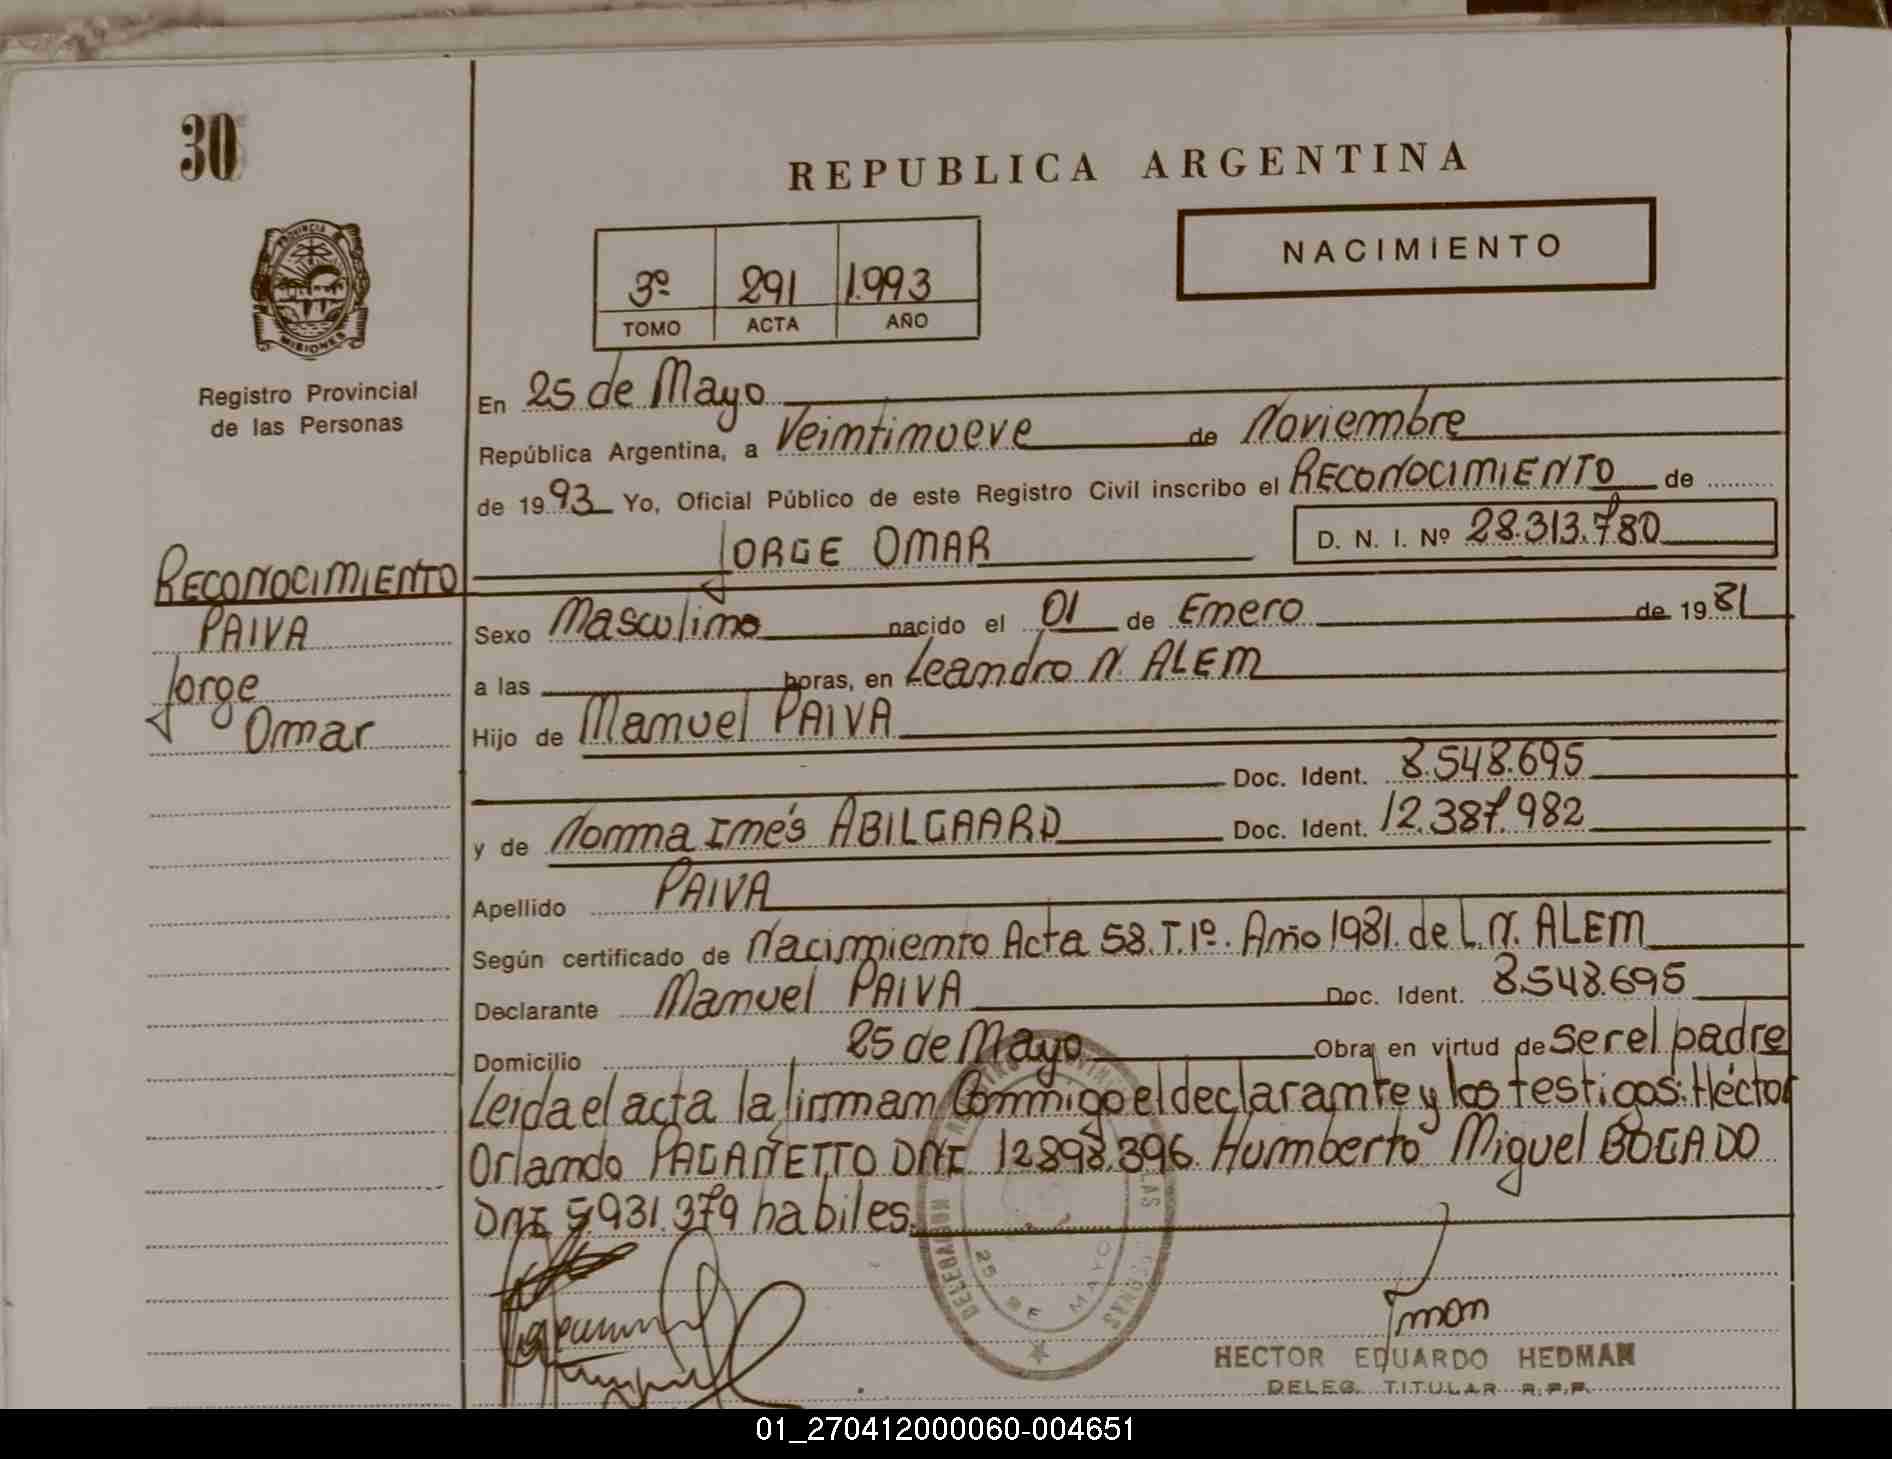 30
REPUBLICA ARGENTINA
NACIMIENTO
3º 291 1.993
TOMO ACTA AÑO
PROVINCIA DE
MISIONES
Registro Provincial
de las Personas
En 25 de Mayo
República Argentina, a Veintinueve de Noviembre
de 1993 Yo, Oficial Público de este Registro Civil inscribo el RECONOCIMIENTO de
JORGE OMAR D. N. I. Nº 28.313.780
RECONOCIMIENTO
PAIVA
Jorge
Omar
Sexo Masculino nacido el 01 de Enero de 1981
a las horas, en Leandro N. ALEM
Hijo de Manuel PAIVA
Doc. Ident. 8.548.695
y de Norma Inés ABILGAARD Doc. Ident. 12.387.982
Apellido PAIVA
Según certificado de Nacimiento Acta 58. T. 1º. Año 1981. de L. N. ALEM
Declarante Manuel PAIVA Doc. Ident. 8.548.695
Domicilio 25 de Mayo Obra en virtud de ser el padre
Leida el acta la firman Conmigo el declarante y los testigos: Héctor
Orlando PAGANETTO DNI 12.898.396. Humberto Miguel BOGADO
DNI 5.931.379 habiles.
25 DE MAYO
HECTOR EDUARDO HEDMAN
DELEG. TITULAR R.P.P.
01_270412000060-004651